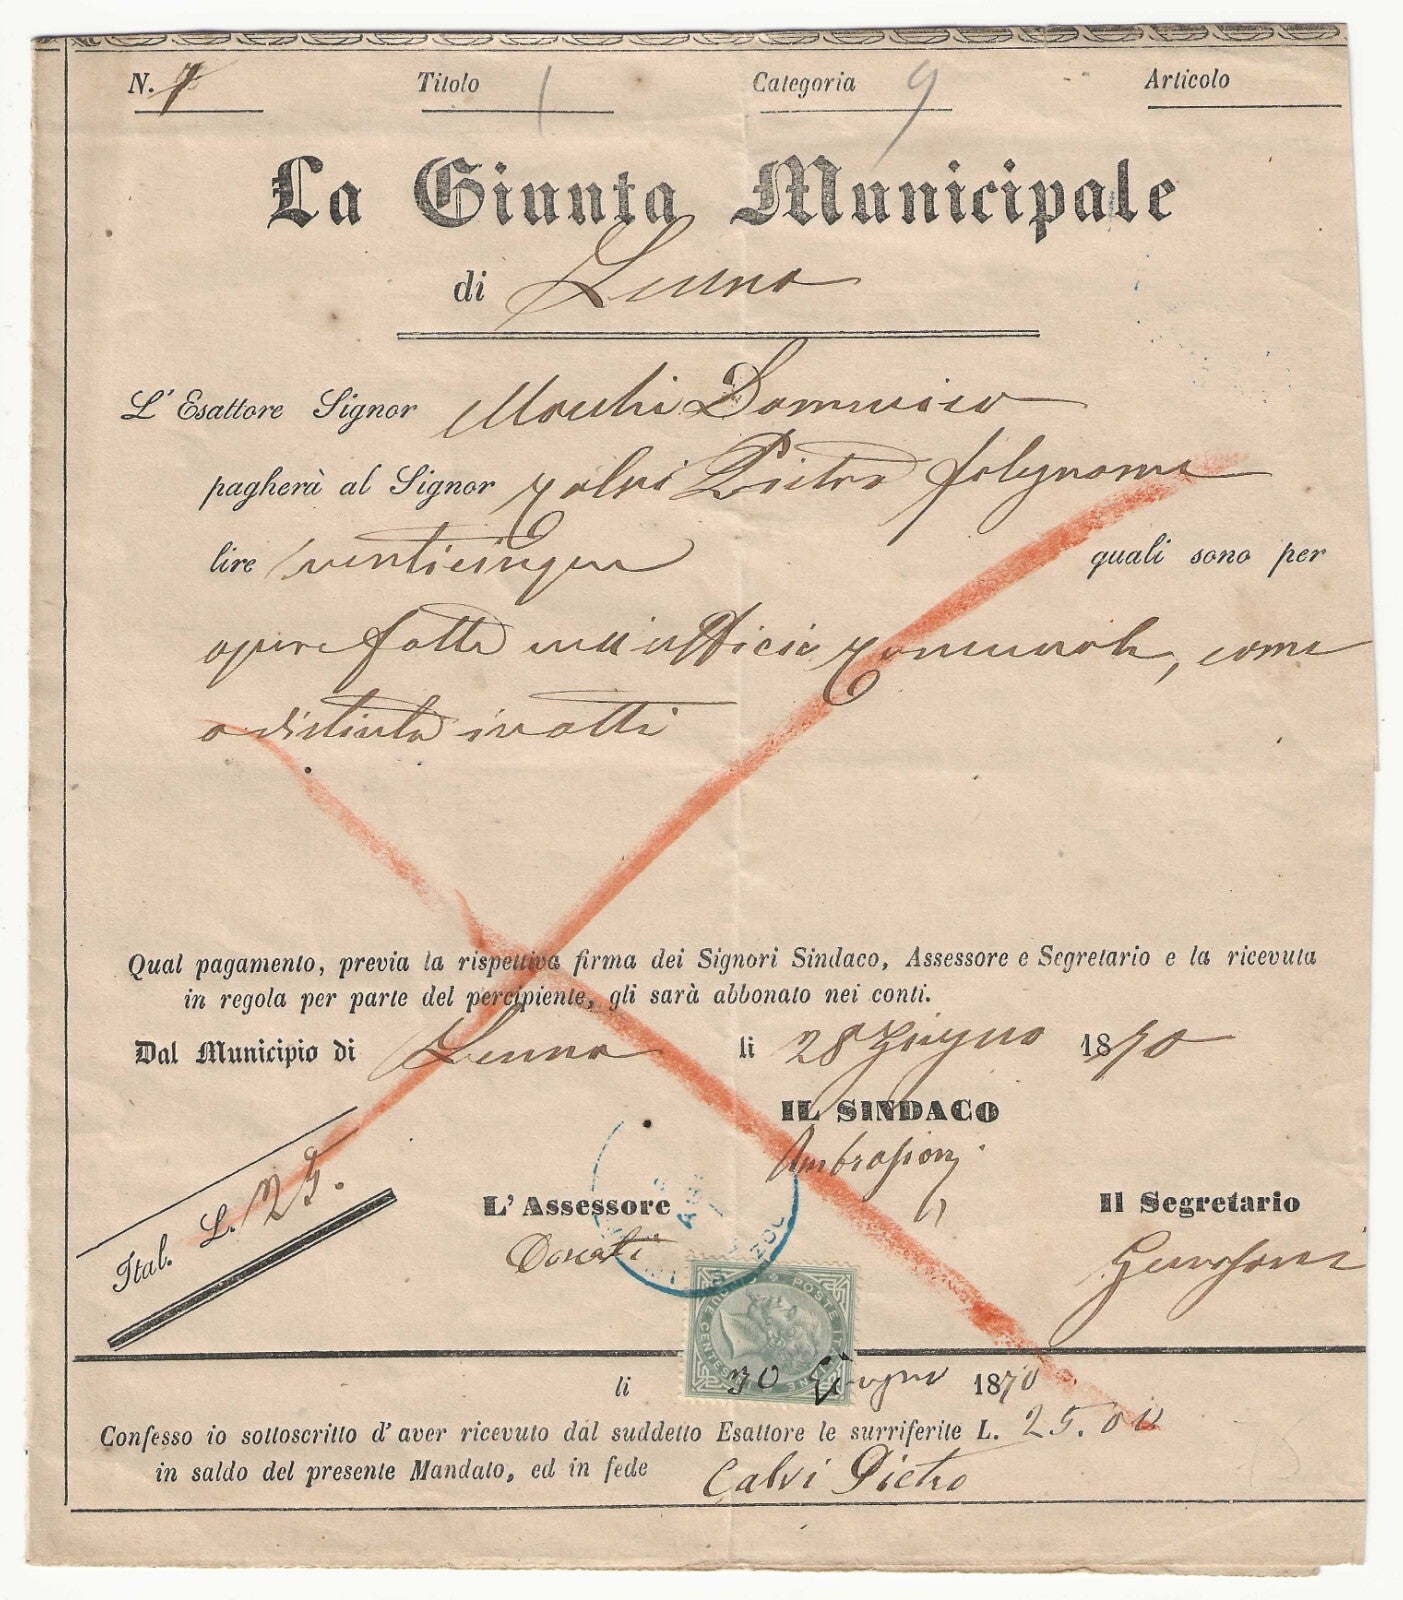 N. 7 Titolo 1 Categoria 9 Articolo
La Giunta Municipale
di Lenna
L' Esattore Signor Domenico
pagherà al Signor Calvi Pietro falegname
lire venticinque quali sono per
opere fatte nell'ufficio Comunale, come
a distinta in atti
Qual pagamento, previa la rispettiva firma dei Signori Sindaco, Assessore e Segretario e la ricevuta
in regola per parte del percipiente, gli sarà abbonato nei conti.
Dal Municipio di Lenna li 28 Giugno 1870
IL SINDACO
Ambrosioni
L'Assessore
Il Segretario
Donati
Ital. L. 25.
POSTE ITALIANE
CINQUE CENTESIMI
li 30 Giugno 1870
Confesso io sottoscritto d'aver ricevuto dal suddetto Esattore le surriferite L. 25.00
in saldo del presente Mandato, ed in fede Calvi Pietro